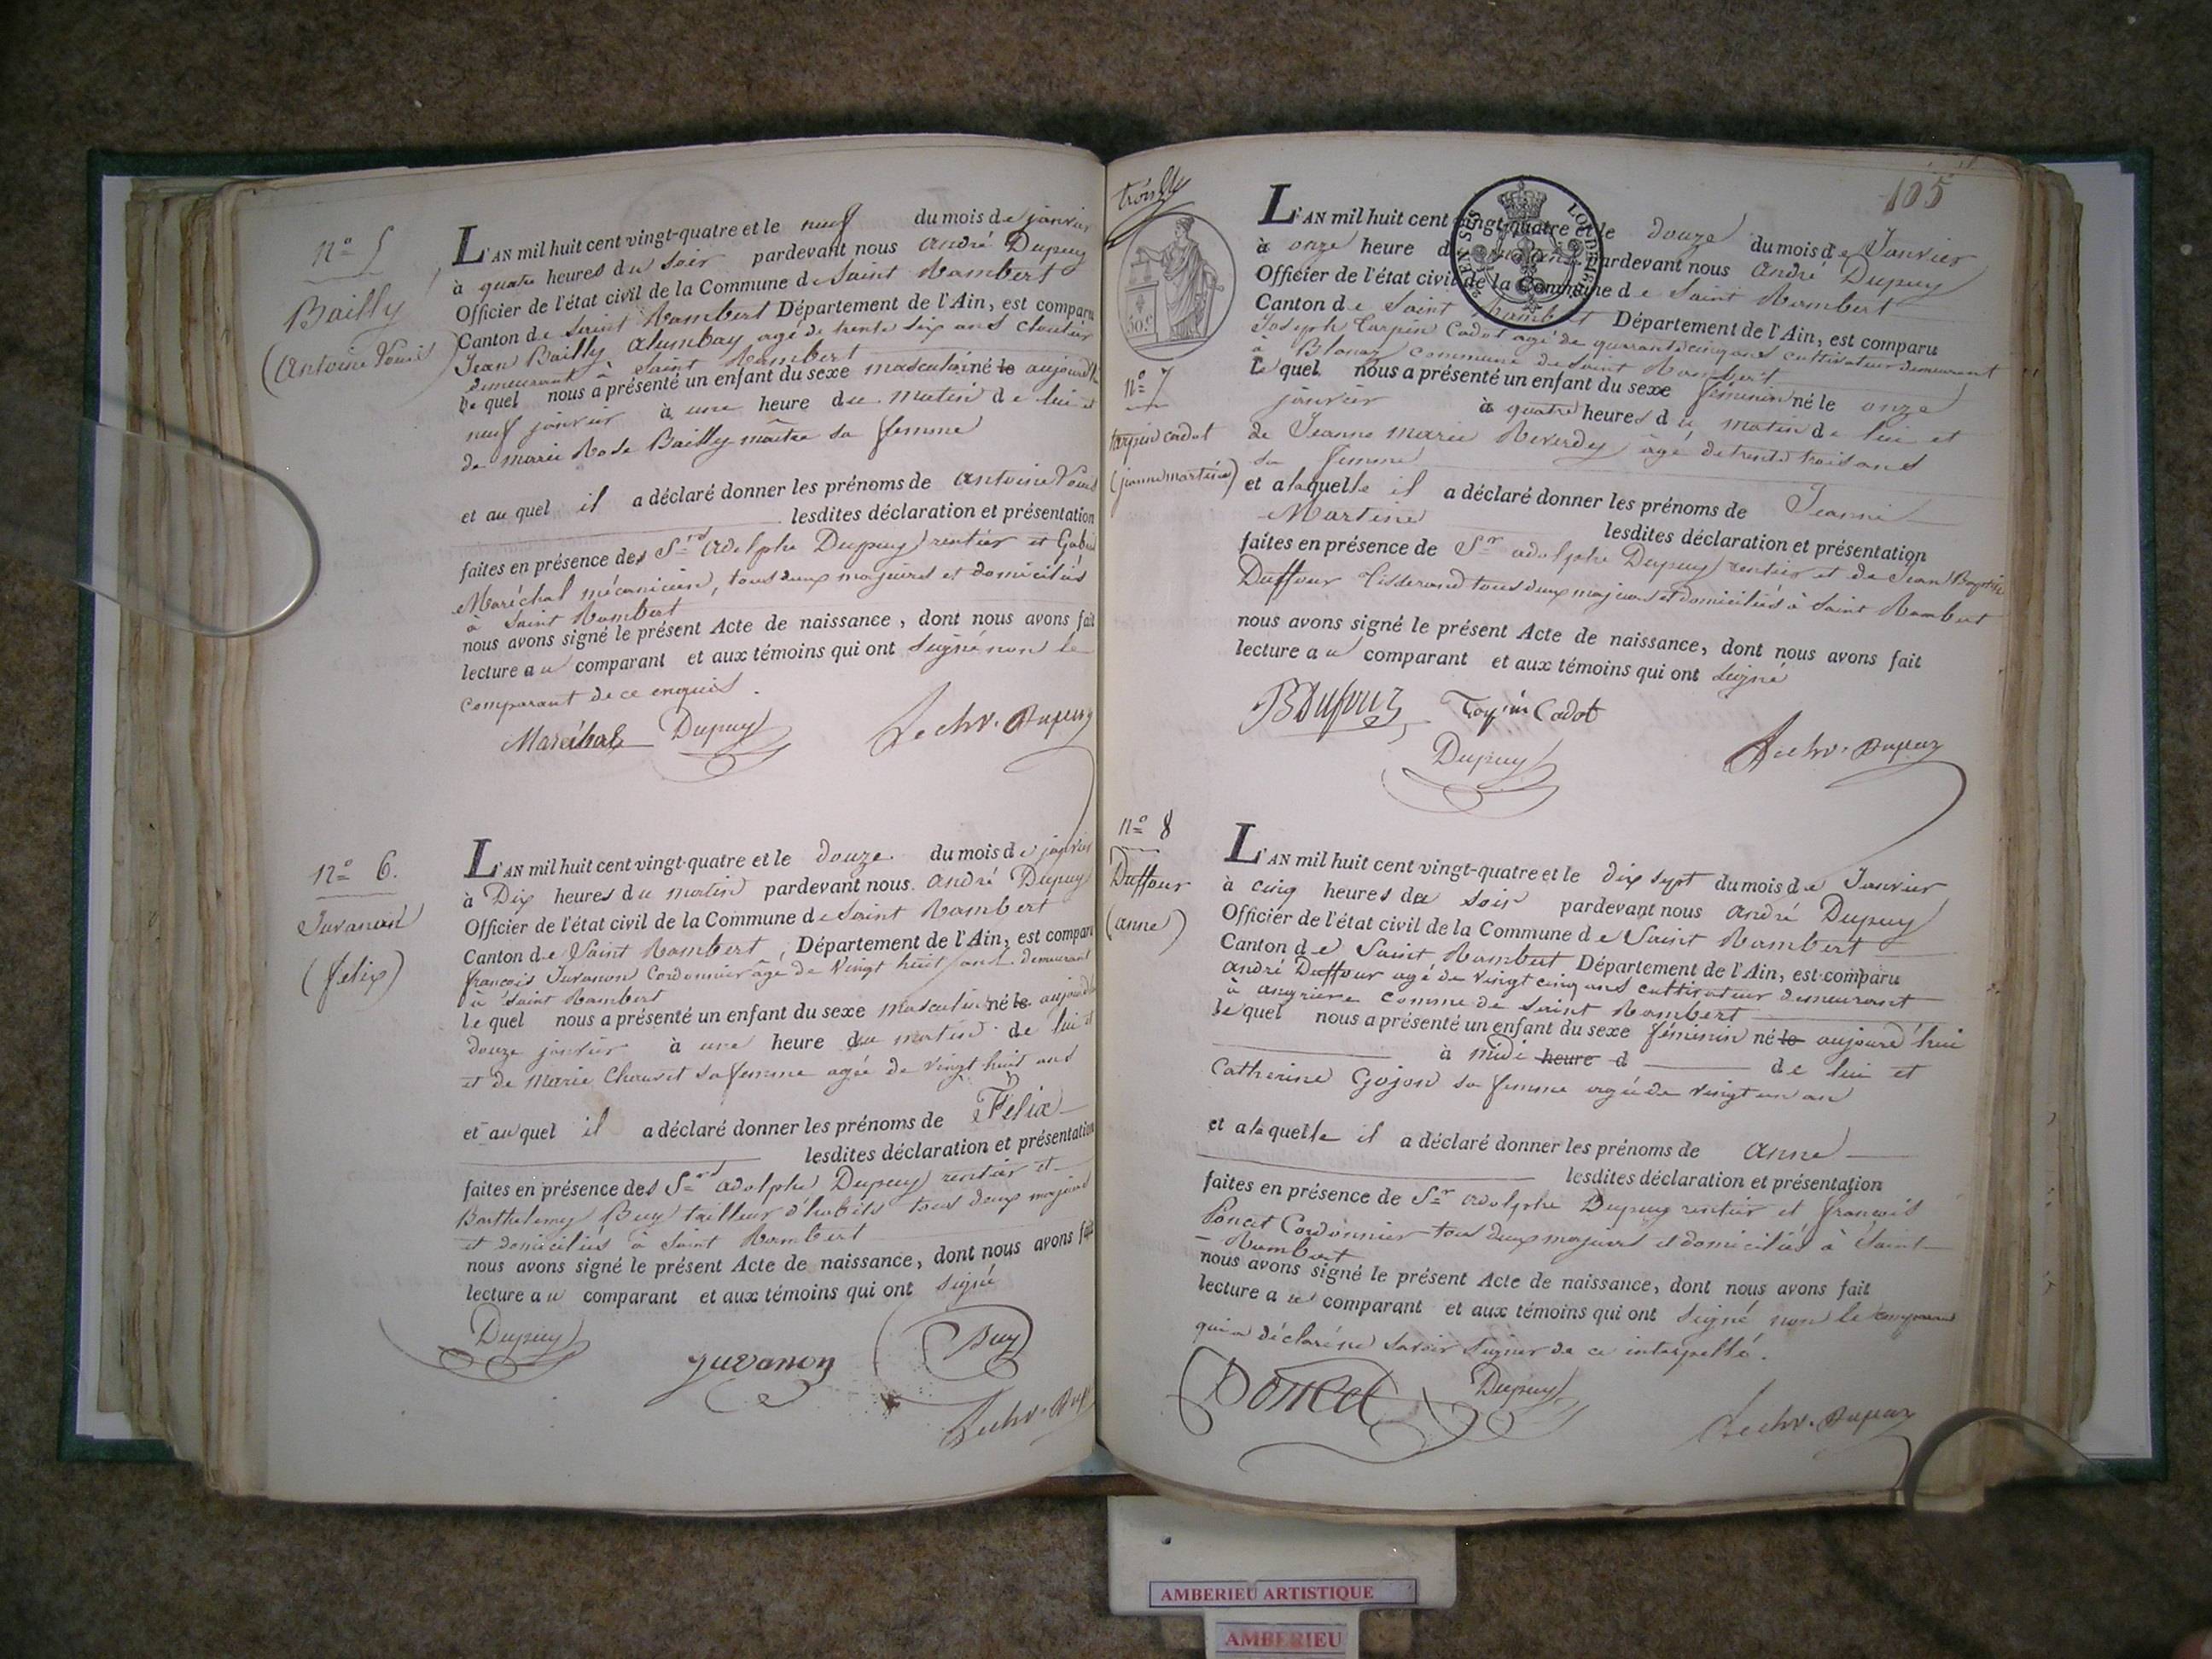 n° 5
Bailly
(Antoine Louis)
L'AN mil huit cent vingt-quatre et le neuf du mois de janvier
à quatre heures du soir pardevant nous André Dupuy
Officier de l'état civil de la Commune de Saint Rambert
Canton de Saint Rambert Département de l'Ain, est comparu
Jean Bailly agé de trente six ans cloutier
demeurant à Saint Rambert
le quel nous a présenté un enfant du sexe masculin né le aujourd'hui
neuf janvier à une heure du matin de lui et
de marie Rose Bailly-maître sa femme
et au quel il a déclaré donner les prénoms de Antoine Louis
lesdites déclaration et présentation
faites en présence des Srs adolphe Dupuy rentier et Gabriel
Maréchal mécanicien, tous deux majeurs et domiciliés
à Saint Rambert
nous avons signé le présent Acte de naissance, dont nous avons fait
lecture au comparant et aux témoins qui ont signé non le
comparant de ce enquis.
Maréchal Dupuy Le chr. Dupuy
n° 6.
Juvanon
(felix)
L'AN mil huit cent vingt-quatre et le douze du mois de janvier
à Dix heures du matin pardevant nous André Dupuy
Officier de l'état civil de la Commune de Saint Rambert
Canton de Saint Rambert, Département de l'Ain, est comparu
françois Juvanon Cordonnier âgé de vingt huit ans demeurant
à Saint Rambert
le quel nous a présenté un enfant du sexe masculin né le aujourd'hui
douze janvier à une heure du matin de lui et
et de Marie Chauvet sa femme agée de vingt huit ans
et au quel il a déclaré donner les prénoms de Felix
lesdites déclaration et présentation
faites en présence des Srs adolphe Dupuy rentier et
Barthelemy Buy tailleur d'habits tous deux majeurs
et domiciliés à Saint Rambert
nous avons signé le présent Acte de naissance, dont nous avons fait
lecture au comparant et aux témoins qui ont signé
Dupuy Juvanon Buy
Le chr. Dupuy
105
50c
SEN SUS LOUD
n° 7
tarpin cadot
(jeanne martine)
L'AN mil huit cent vingt-quatre et le douze du mois de Janvier
à onze heure du matin pardevant nous André Dupuy
Officier de l'état civil de la Commune de Saint Rambert
Canton de Saint Rambert Département de l'Ain, est comparu
Joseph Tarpin Cadot agé de quarante cinq ans cultivateur demeurant
à Blanaz commune de Saint Rambert
le quel nous a présenté un enfant du sexe féminin né le onze
janvier à quatre heures du matin de lui et
de Jeanne Marie Reverdy âgé de trente trois ans
sa femme
et a laquelle il a déclaré donner les prénoms de Jeanne
Martine lesdites déclaration et présentation
faites en présence de Sr adolphe Dupuy rentier et de Jean Baptiste
Duffour Tisserand tous deux majeurs et domiciliés à Saint Rambert
nous avons signé le présent Acte de naissance, dont nous avons fait
lecture au comparant et aux témoins qui ont signé
B Dufour Tarpin Cadot
Dupuy Le chr. Dupuy
n° 8
Duffour
(anne)
L'AN mil huit cent vingt-quatre et le dix sept du mois de Janvier
à cinq heures du soir pardevant nous André Dupuy
Officier de l'état civil de la Commune de Saint Rambert
Canton de Saint Rambert Département de l'Ain, est comparu
André Duffour agé de vingt cinq ans cultivateur demeurant
à angrière comme de Saint Rambert
le quel nous a présenté un enfant du sexe féminin né le aujourd'hui
à midi heure d de lui et
Catherine Gojon sa femme agée de vingt un an
et a laquelle il a déclaré donner les prénoms de anne
lesdites déclaration et présentation
faites en présence de Sr adolphe Dupuy rentier et françois
Poncet Cordonnier tous deux majeurs et domiciliés à Saint
Rambert
nous avons signé le présent Acte de naissance, dont nous avons fait
lecture au comparant et aux témoins qui ont signé non le comparant
qui a déclaré ne savoir signer de ce interpellé.
Poncet Dupuy Le chr. Dupuy
AMBERIEU ARTISTIQUE
AMBERIEU